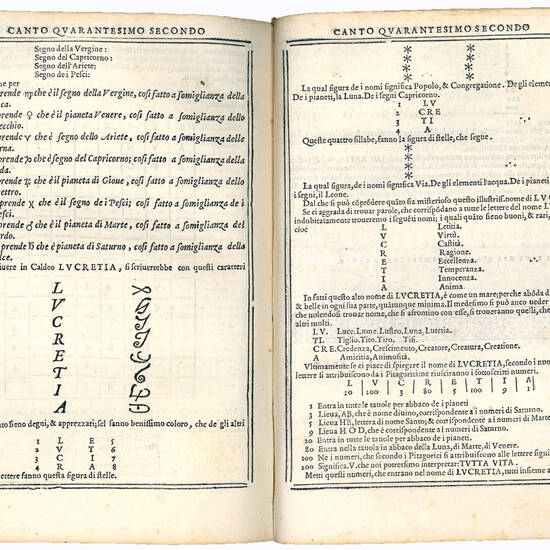 CANTO QVARANTESIMO SECONDO
Segno della Vergine:
Segno del Capricorno:
Segno dell'Ariete:
Segno de i Pesci:
me per
prende ♍ che è il segno della Vergine, cosi fatto a somiglianza della
ca.
prende ♀ che è il pianeta Venere, cosi fatto a somiglianza dello
ecchio.
prende ♈ che è segno dello Ariete, cosi fatto a somiglianza della
rna.
prende ♑ che è segno del Capricorno; cosi fatto a somiglianza della
prende ♃ che è il pianeta di Gioue, cosi fatto a somiglianza dello
ettro.
prende ♓ che è il segno de i Pesci; cosi fatto a somiglianza de i
esci.
prende ♂ che è il pianeta di Marte, cosi fatto a somiglianza del
ardo.
prende ♄ che è pianeta di Saturno, cosi fatto a somiglianza della
lce.
iuere in Caldeo LVCRETIA, si scriuerebbe con questi caratteri
L
V
C
R
E
T
I
A
to sieno degni, & apprezzati; sel sanno benissimo coloro, che de gli altri
1 L E 5
2 V T 6
3 C I 7
4 R A 8
ettere fanno questa figura di stelle.
CANTO QVARANTESIMO SECONDO
*
*
*
*
La qual figura de i nomi significa Popolo, & Congregatione. De gli eleme
De i pianeti, la Luna. De i segni Capricorno.
1 LV
2 CRE
3 TI
4 A
Queste quattro sillabe, fanno la figura di stelle, che segue.
*
*
*
*
La qual figura, de i nomi significa Via. De gli elementi l'acqua. De i pianeti
i segni, il Leone.
Dal che si può cōprēdere quāto sia misterioso questo illustriss. nome di LV
Se ci aggrada di trouar parole, che corrispōdano a tutte le lettere del nome L
indubitatamente trouaremo i seguēti nomi; i quali quāto sien buoni, & rari,
cioè
L Letitia.
V Virtù.
C Castità.
R Ragione.
E Eccellenza.
T Temperanza.
I Innocenza.
A Anima.
In fatti questo alto nome di LVCRETIA, è come un mare; perche abōda d
& belle in ogni sua parte, quātunque minima. Il medesimo si può anco ueder
che uolendosi trouar nomi, che si affrontino con esse, si troueranno quelli, che
altri molti.
LV. Luce. Lume. Lustro. Luna, Lutetia.
TI. Tiglio. Tito. Tiro. Tifi.
CRE. Credenza, Crescimento, Creatore, Creatura, Creatione.
A Amicitia, Animosità.
Vltimamente se ci piace di spiegar il nome di LVCRETIA, secondo i nu
lettere si attribuiscono da i Pitagorici: ne riusciranno i sottoscritti numeri.
L | V | C | R | E | T | I | A
20 | 100 | 3 | 80 | 5 | 100 | 9 | 1
1 Entra in tutte le tauole per abbaco de i pianeti
3 Lieua, AB, che è nome diuino, corrispondente a i numeri di Saturno.
5 Lieua HE, lettera di nome Santo; & corrispondente a i numeri di Marte
9 Lieua HOD, che è corrispondente a i numeri di Saturno.
20 Entra in tutte le tauole per abbaco de i pianeti.
80 Entra nella tauola in abbaco della Luna, di Marte, di Venere.
100 Ne i numeri, che secondo i Pitagorici si attribuiscono alle lettere signi
100 Significa. V. che noi potressimo interpretar: TVTTA VITA.
Metti questi numeri, che entrano nel nome di LVCRETIA, tutti insieme a